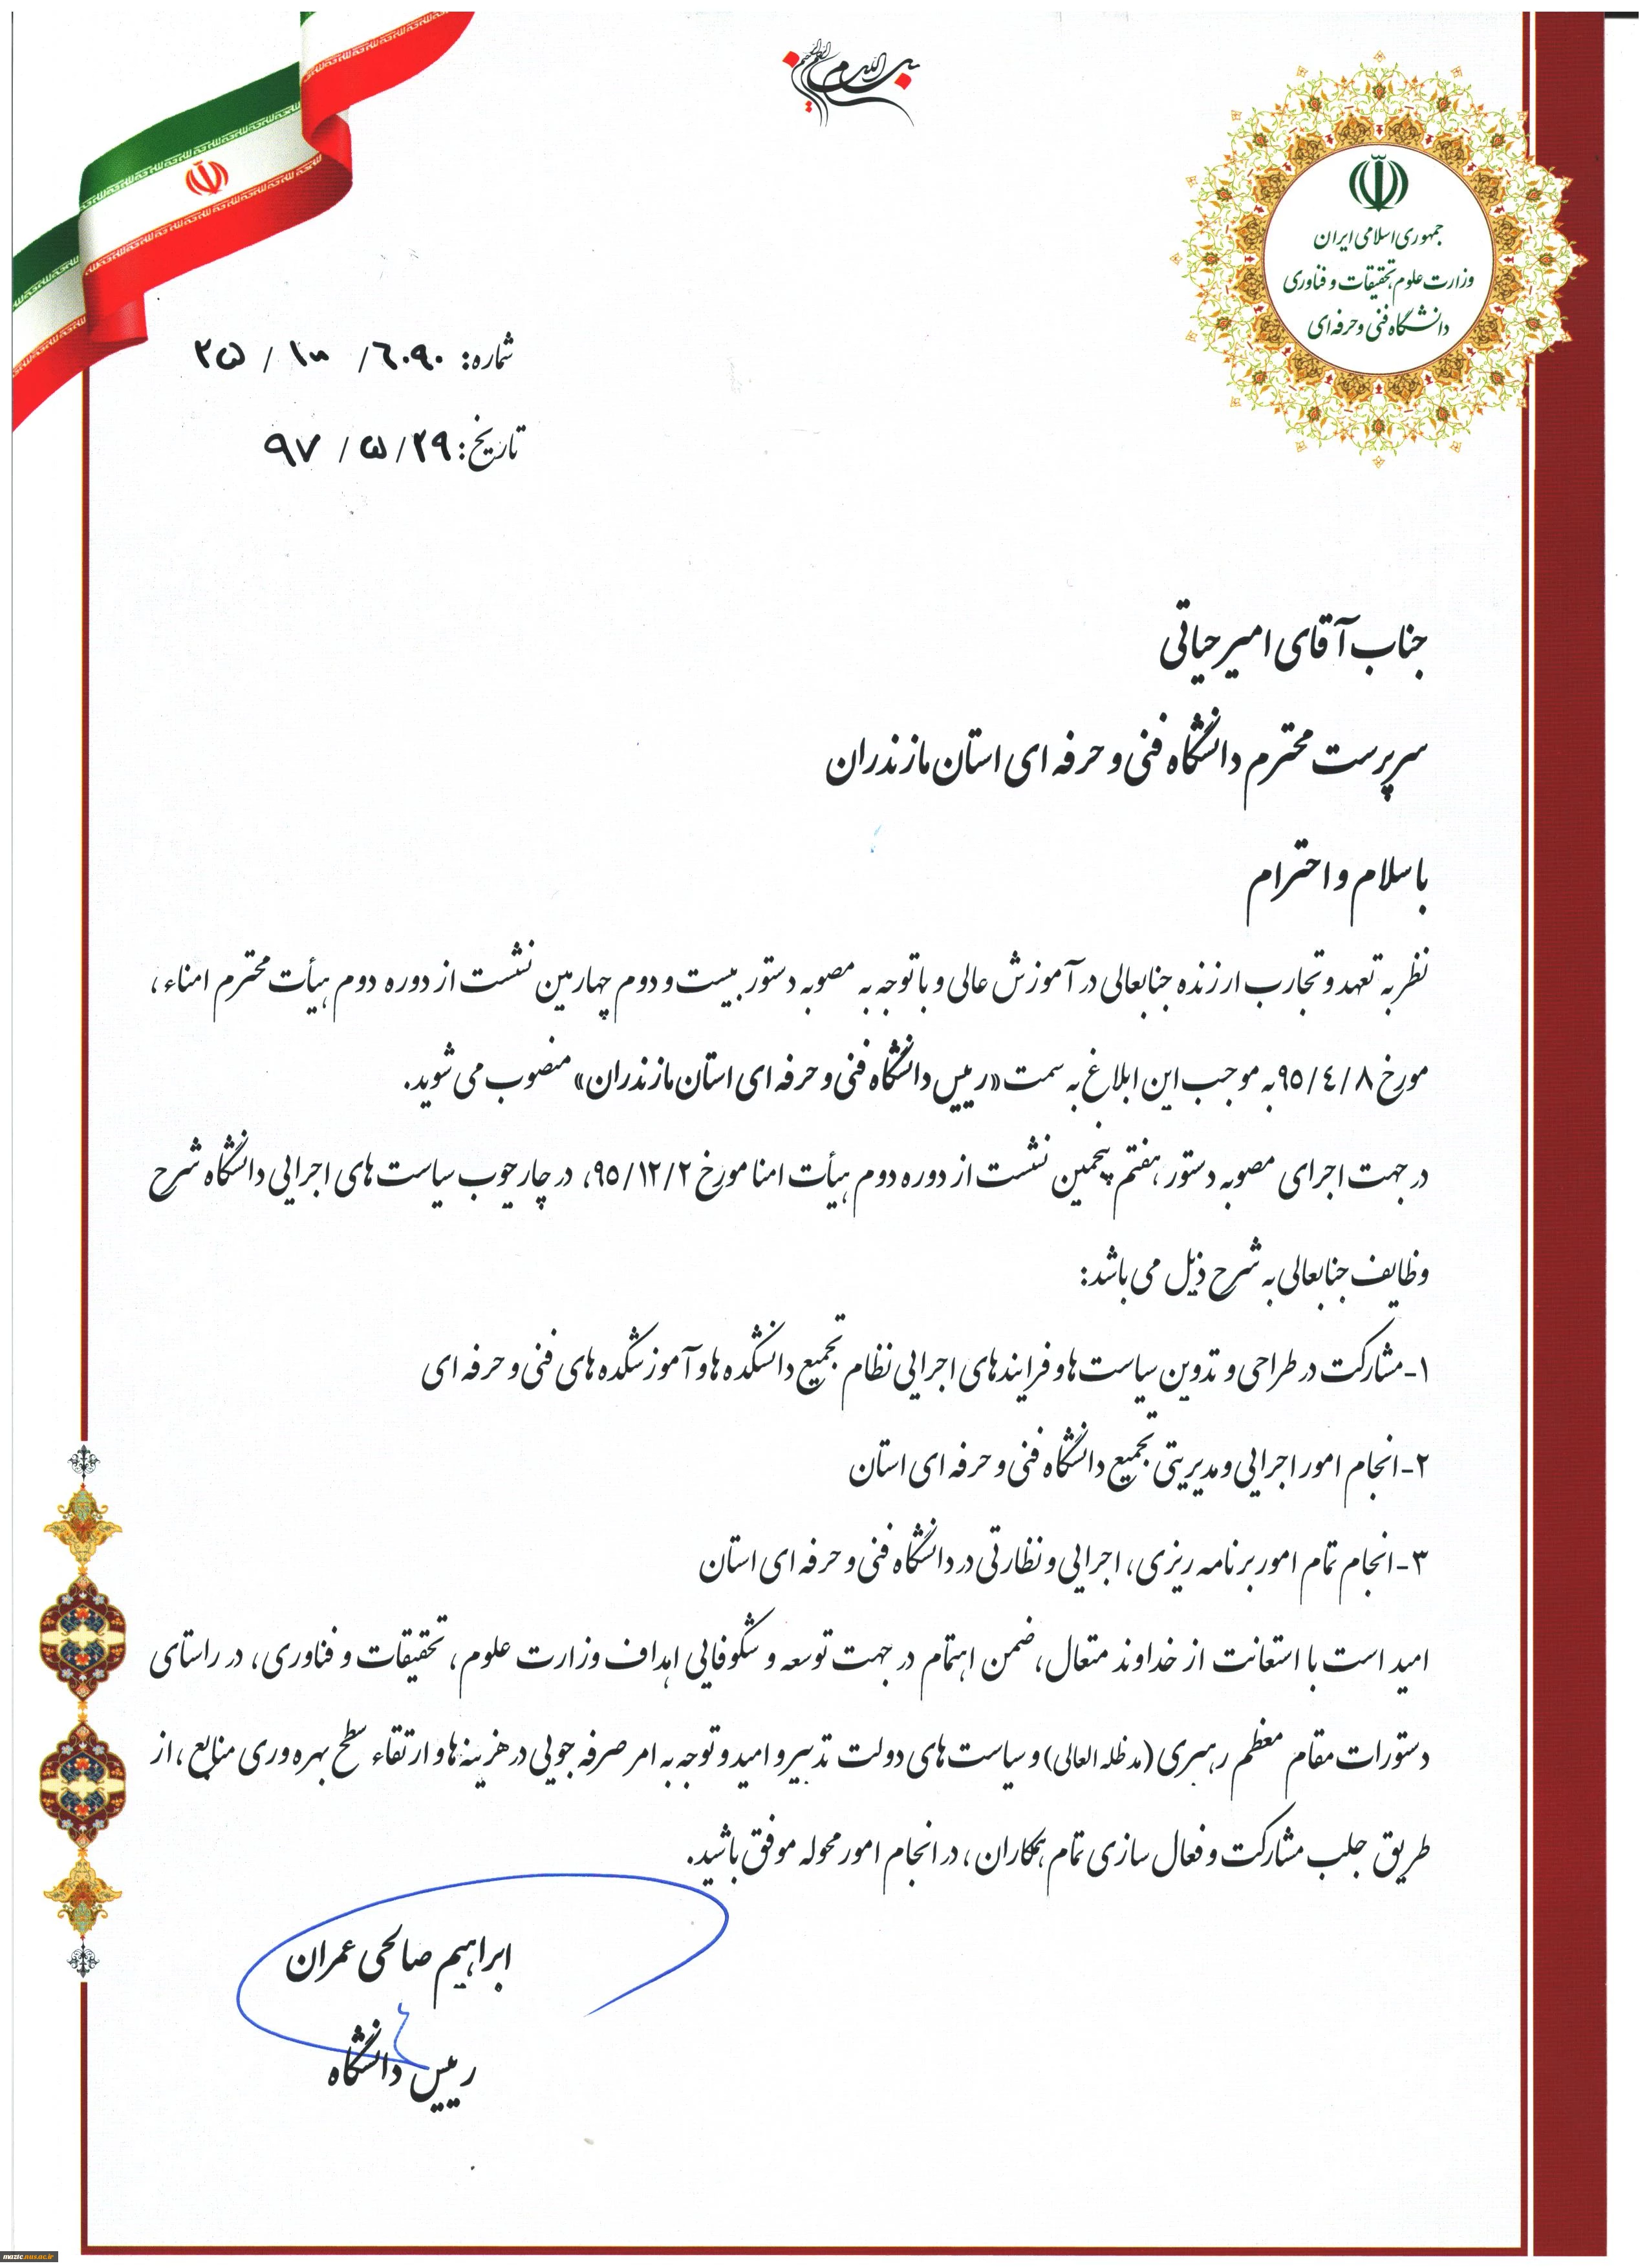 بسم الله الرحمن الرحیم
جمهوری اسلامی ایران
وزارت علوم، تحقیقات و فناوری
دانشگاه فنی و حرفه ای
شماره: ۶۰۹۰ /
تاریخ: ۲۹ / ۵ / ۹۷
جناب آقای امیر حیاتی
سرپرست محترم دانشگاه فنی و حرفه ای استان مازندران
با سلام و احترام
نظر به تعهد و تجارب ارزنده جنابعالی در آموزش عالی و با توجه به مصوبه دستور بیست و دوم چهارمین نشست از دوره دوم هیأت محترم امناء،
مورخ ۹۵/۴/۸ به موجب این ابلاغ به سمت «رییس دانشگاه فنی و حرفه ای استان مازندران» منصوب می شوید.
در جهت اجرای مصوبه دستور هفتم پنجمین نشست از دوره دوم هیأت امنا مورخ ۹۵/۱۲/۲، در چارچوب سیاست های اجرایی دانشگاه شرح
وظایف جنابعالی به شرح ذیل می باشد:
۱- مشارکت در طراحی و تدوین سیاست ها و فرایندهای اجرایی نظام تجمیع دانشکده ها و آموزشکده های فنی و حرفه ای
۲- انجام امور اجرایی و مدیریتی تجمیع دانشگاه فنی و حرفه ای استان
۳- انجام تمام امور برنامه ریزی، اجرایی و نظارتی در دانشگاه فنی و حرفه ای استان
امید است با استعانت از خداوند متعال، ضمن اهتمام در جهت توسعه و شکوفایی اهداف وزارت علوم، تحقیقات و فناوری، در راستای
دستورات مقام معظم رهبری (مد ظله العالی) و سیاست های دولت تدبیر و امید و توجه به امر صرفه جویی در هزینه ها و ارتقاء سطح بهره وری منابع، از
طریق جلب مشارکت و فعال سازی تمام همکاران، در انجام امور محوله موفق باشید.
ابراهیم صالحی عمران
رییس دانشگاه
mazic.nus.ac.ir